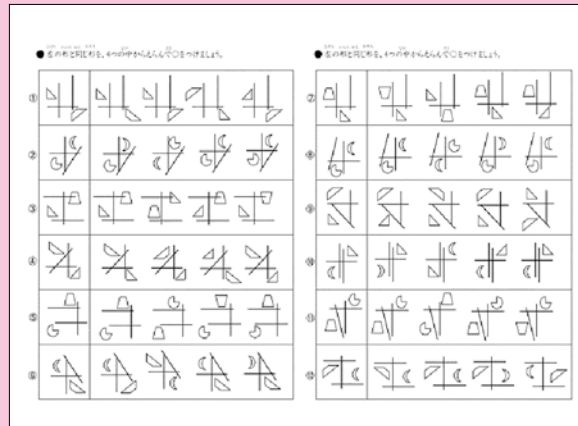 ● 左の形と同じ形を、4つの中からえらんで○をつけましょう。
①
②
③
④
⑤
⑥
● 左の形と同じ形を、4つの中からえらんで○をつけましょう。
⑦
⑧
⑨
⑩
⑪
⑫